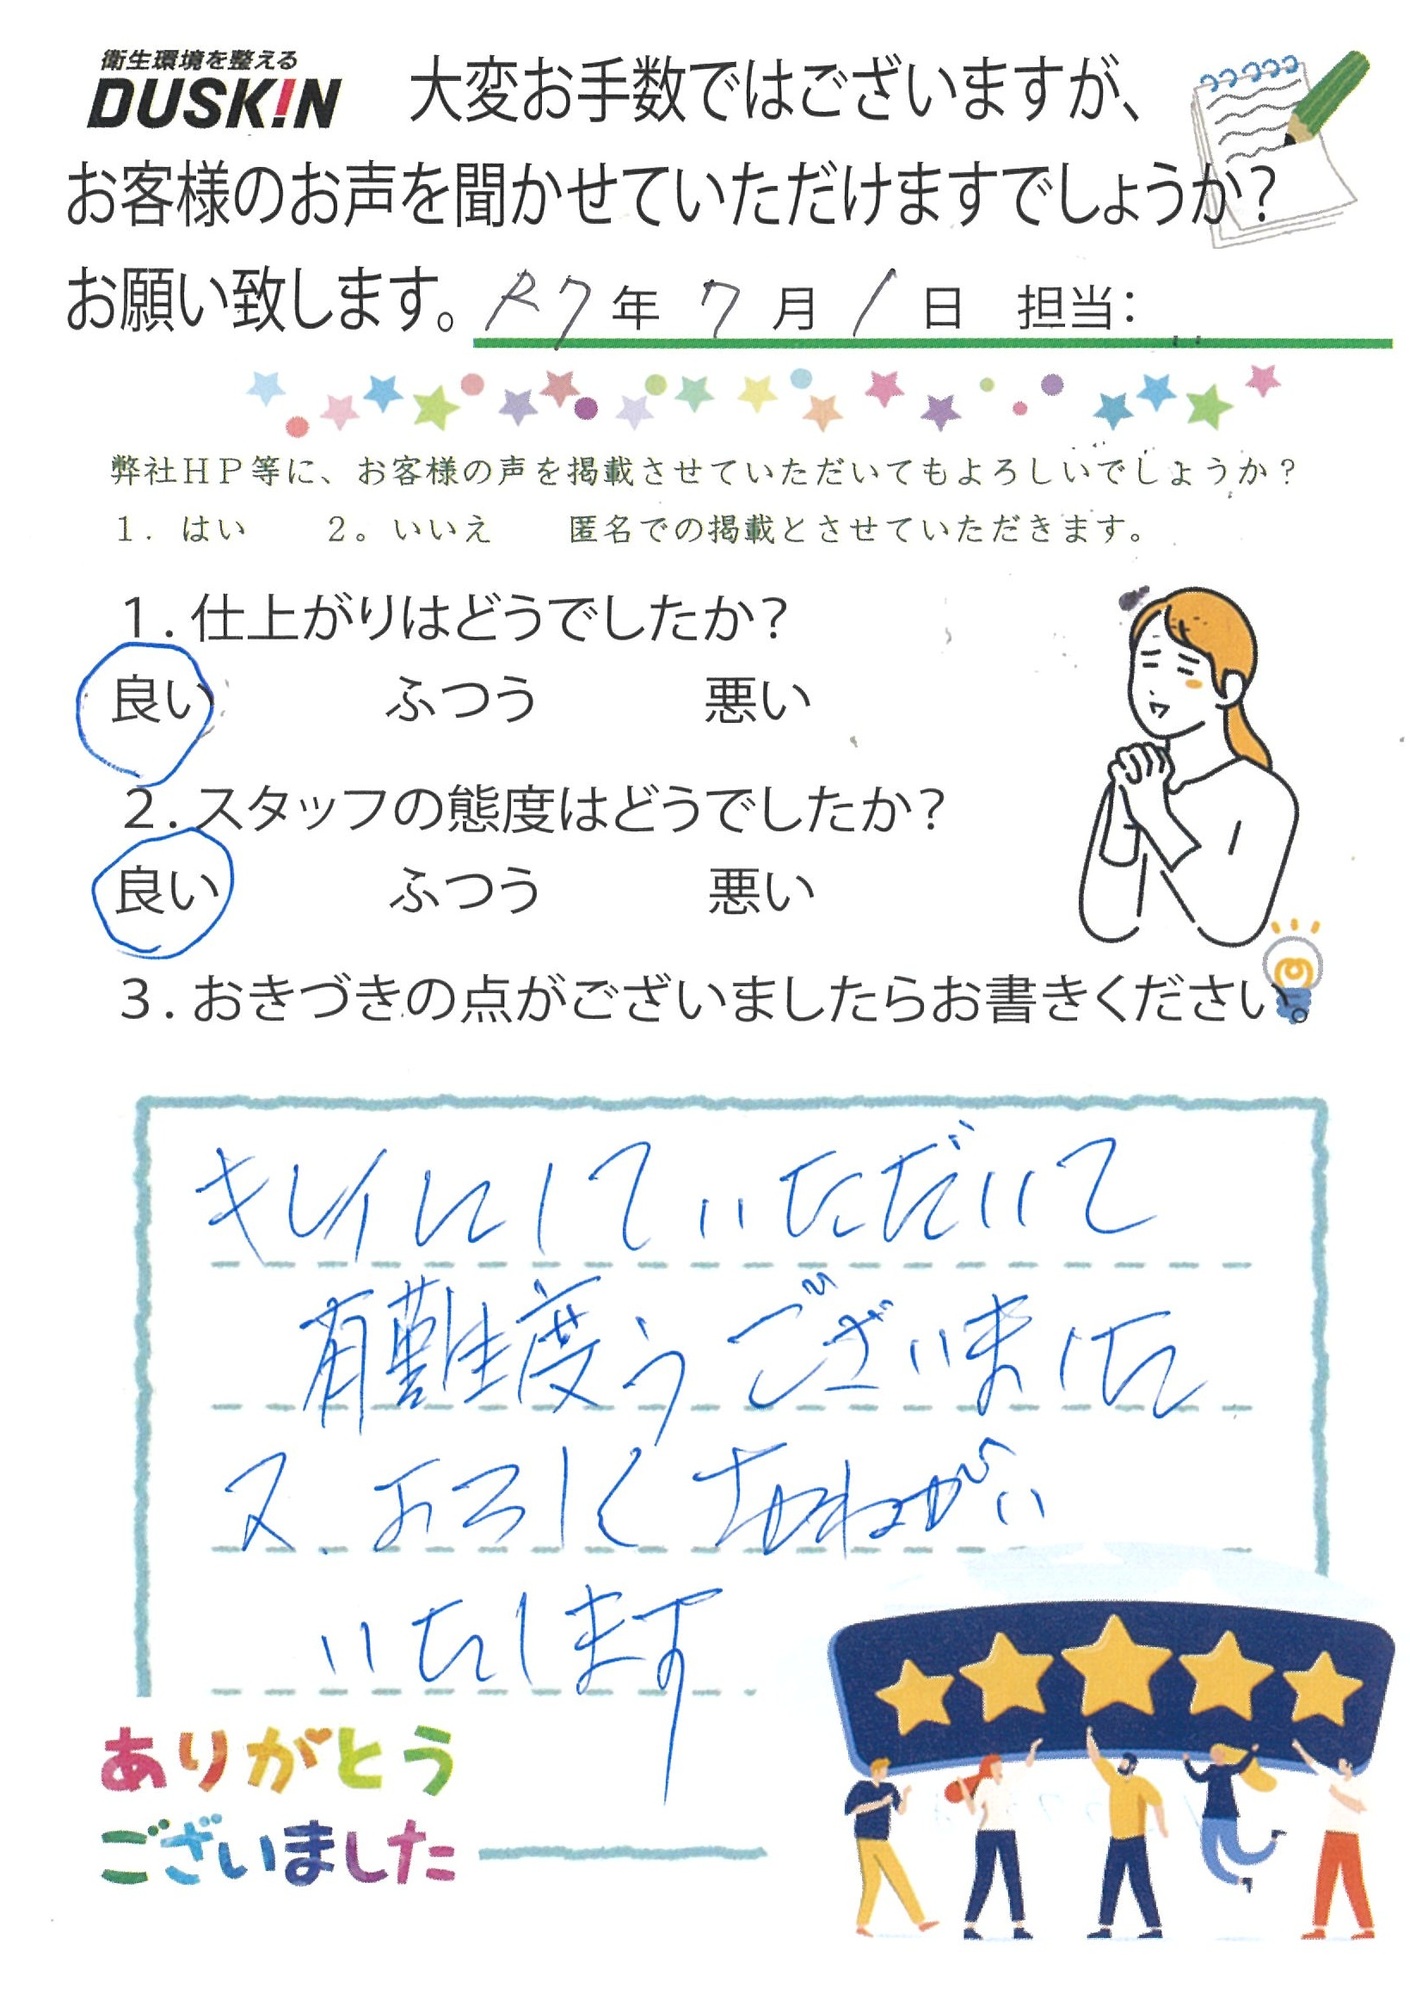 衛生環境を整える
DUSKIN
大変お手数ではございますが、
お客様のお声を聞かせていただけますでしょうか?
お願い致します。R7年 7月 1日 担当:
弊社HP等に、お客様の声を掲載させていただいてもよろしいでしょうか?
1. はい 2。いいえ 匿名での掲載とさせていただきます。
1.仕上がりはどうでしたか?
良い ふつう 悪い
2.スタッフの態度はどうでしたか?
良い ふつう 悪い
3.おきづきの点がございましたらお書きください。
キレイにしていただいて
有難度うございました
又、よろしくおねがい
いたします
ありがとう
ございました